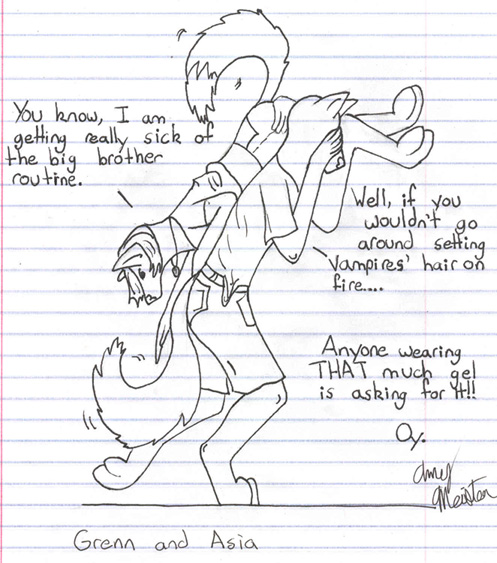 You know, I am
getting really sick of
the big brother
routine.
Well, if you
wouldn't go
around setting
Vampires' hair on
fire....
Anyone wearing
THAT much gel
is asking for it!!
Oy.
Grenn and Asia